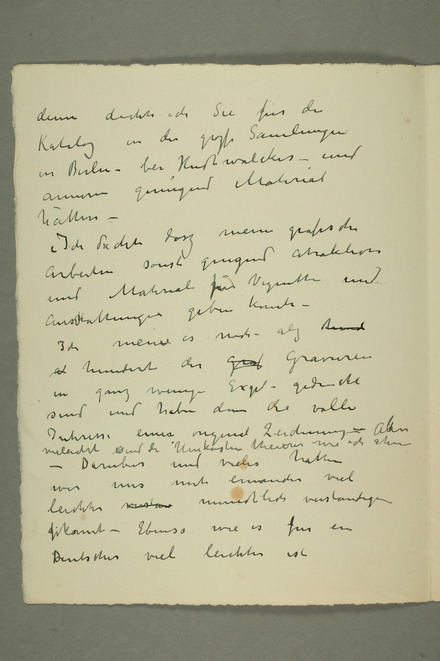 denn dachte ich Sie für den
Katalog in der großen Samlungen
in Berlin – bei Hudtwalckers – und
anderen genügend Material
hätten –
Ich dachte dasz meine grafischen
Arbeiten sonst genügend atraktion
und Material für Vignetten und
Ausstattungen geben konte –
Ich meine es noch – als
hundert der Gravuren
in ganz wenige Expl. gedruckt
sind und haben dann die volle
Interesse einer original Zeichnung – Aber
vieleicht sind die Unkosten theurer wie ich ahne
– Darüber und vieles hatten
wir uns mit einander viel
leichter mundtlich verständigen
gekonnt – Ebenso wie es für ein
Deutscher viel leichter ist